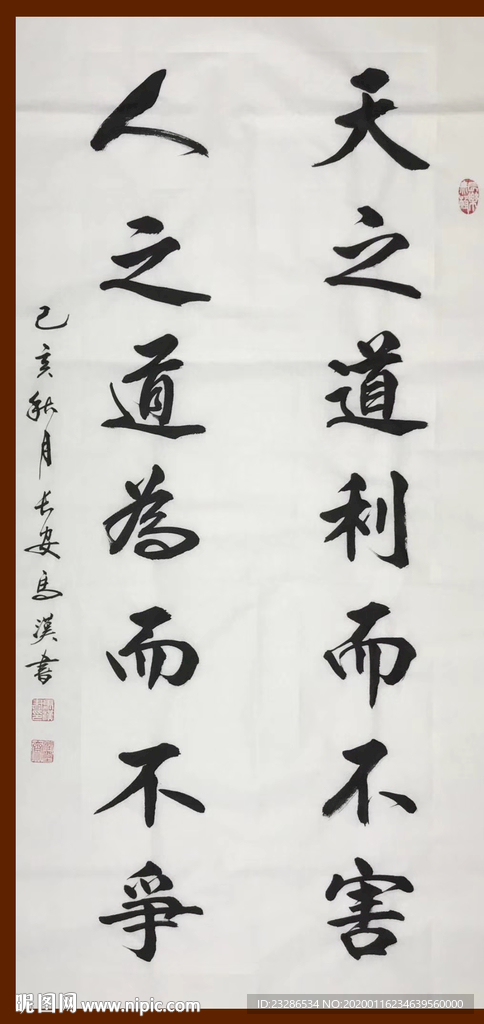 天之道利而不害
人之道為而不爭
己亥秋月长安馬漢書
昵图网 www.nipic.com
ID:23286534 NO:20200116234639560000